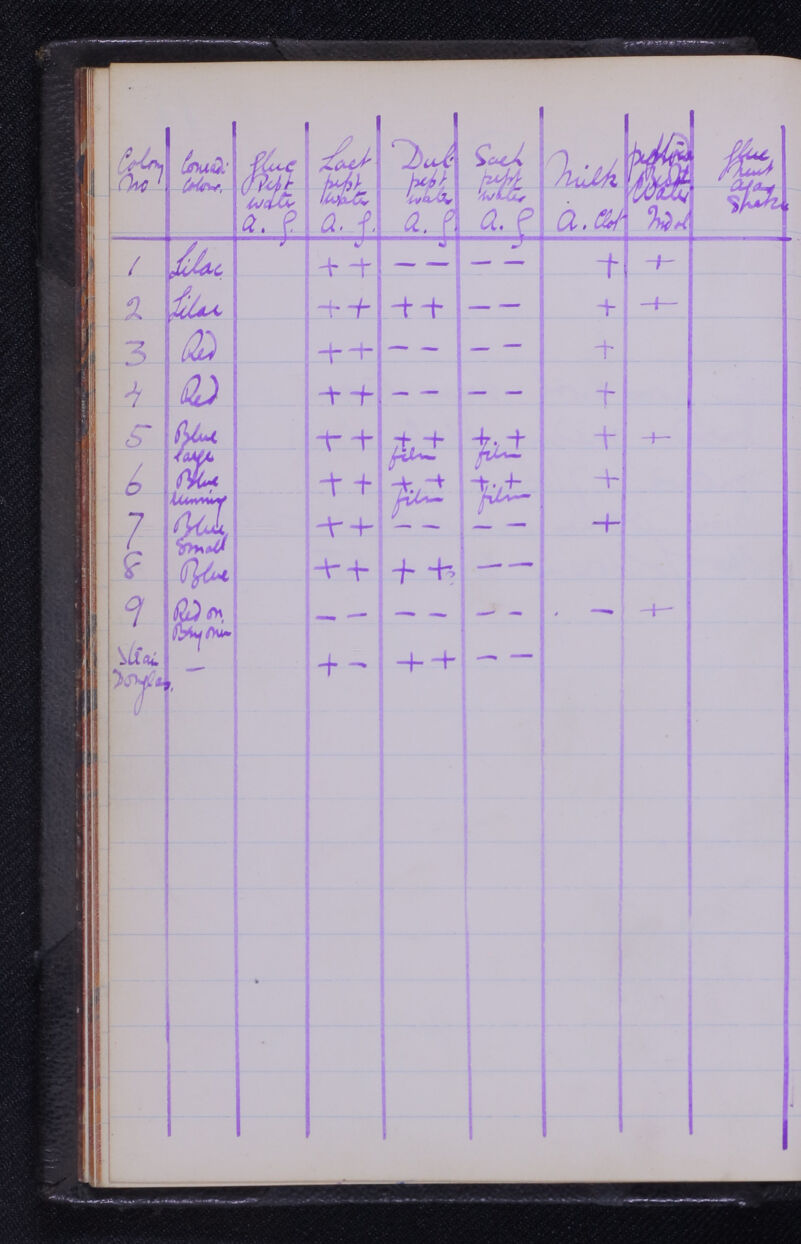 Colony No | Conradi Colour. | Gluc pept water A. G. | Lact pept water A. G. | Dul. pept water A. G. | Sach pept water A. G | Milk A. Clot | peptone water Indol | Gluc neut agar Shake
1 | Lilac | | + + | – – | – – | + | +
2 | Lilac | | + + | + + | – – | + | +
3 | Red | | + + | – – | – – | +
4 | Red | | + + | – – | – – | +
5 | Blue large | | + + | + + film | + . + film | + | +
6 | Blue | | + + | + + film | + . + film | +
7 | Blue Small | | + + | – – | – – | +
8 | Blue | | + + | + + | – –
9 | Red on | | – – | – – | – – | . – | +
Strain Douglas. | – | | + – | + + | – –